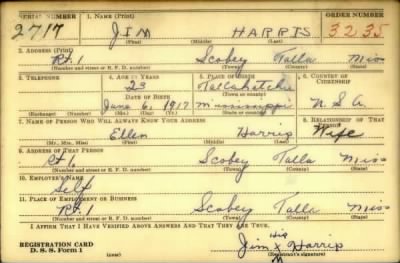 SERIAL NUMBER 1. NAME (Print) ORDER NUMBER
2717 JIM HARRIS 3235
(First) (Middle) (Last)
2. ADDRESS (Print)
Rt. 1 Scobey Talla Miss
(Number and street or R. F. D. number) (Town) (County) (State)
3. TELEPHONE 4. AGE IN YEARS 5. PLACE OF BIRTH 6. COUNTRY OF CITIZENSHIP
23 Tallahatchie
DATE OF BIRTH (Town or county)
June 6, 1917 Mississippi U.S.A.
(Exchange) (No.) (Mo.) (Day) (Yr.) (State or country)
7. NAME OF PERSON WHO WILL ALWAYS KNOW YOUR ADDRESS 8. RELATIONSHIP OF THAT PERSON
Ellen Harris Wife
(Mr., Mrs., Miss) (First) (Middle) (Last)
9. ADDRESS OF THAT PERSON
Rt 1, Scobey Talla Miss
(Number and street or R. F. D. number) (Town) (County) (State)
10. EMPLOYER'S NAME
Self
11. PLACE OF EMPLOYMENT OR BUSINESS
Rt. 1 Scobey Talla Miss
(Number and street or R. F. D. number) (Town) (County) (State)
I AFFIRM THAT I HAVE VERIFIED ABOVE ANSWERS AND THAT THEY ARE TRUE.
His
REGISTRATION CARD Jim X Harris
D. S. S. Form 1 (Registrant's signature)